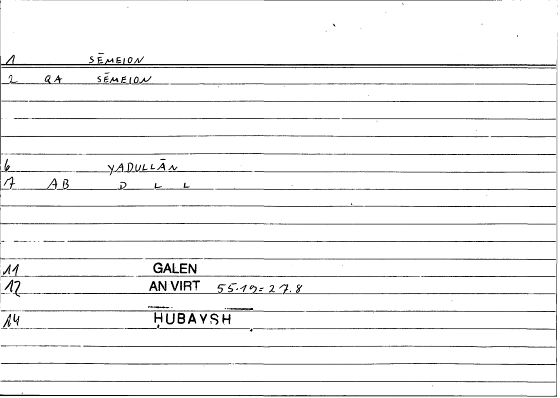 1 SĒMEION
2 QA SĒMEION
6 YADULLĀN
7 AB D L L
11 GALEN
12 AN VIRT 55.19=27.8
14 ḤUBAYSH